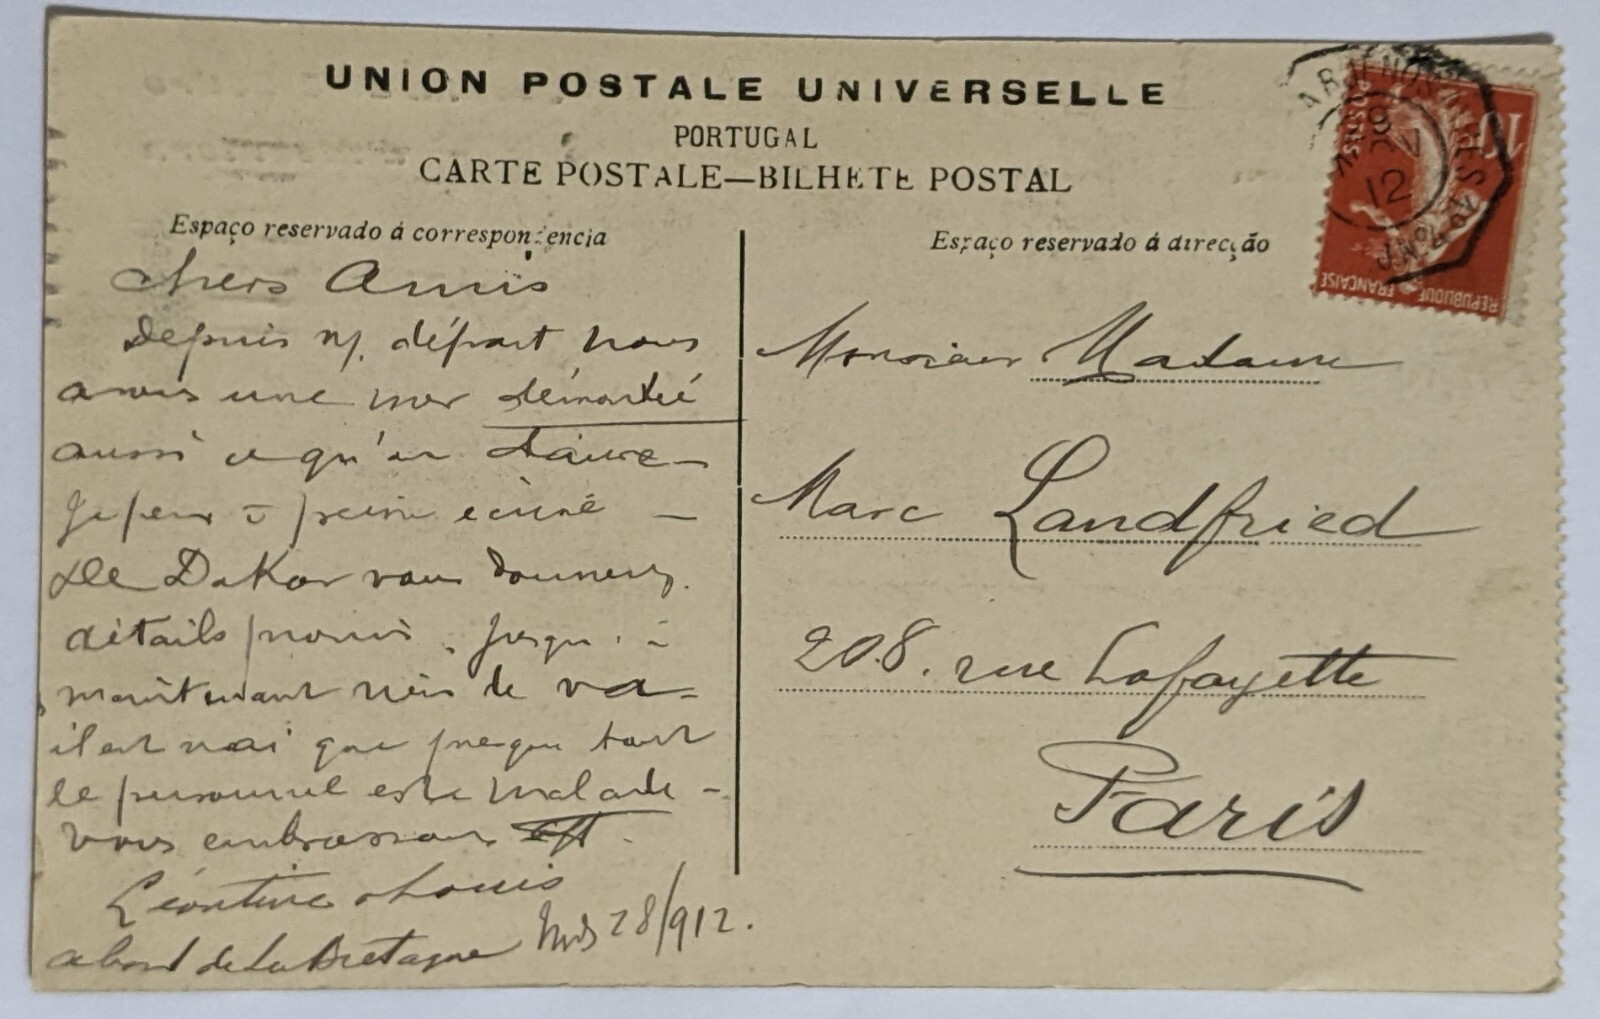 UNION POSTALE UNIVERSELLE
PORTUGAL
CARTE POSTALE—BILHETE POSTAL
Espaço reservado á correspondencia
Espaço reservado á direcção
chers Amis
Depuis n/. départ nous
avons une mer démontée
aussi ce qu'on danse —
Je peux à peine écrire —
De Dakar vous donnerez
détails promis. Jusqu'à
maintenant rien de va =
il est vrai que presque tout
le personnel est malade -
vous embrassons
Léontine & Louis
a bord de La Bretagne 28/912.
Monsieur Madame
Marc Landfried
208. rue Lafayette
Paris
10
POSTES
REPUBLIQUE FRANÇAISE
12